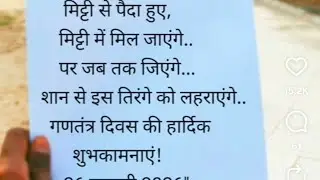 मिट्टी से पैदा हुए,
मिट्टी में मिल जाएंगे..
पर जब तक जिएंगे...
शान से इस तिरंगे को लहराएंगे..
गणतंत्र दिवस की हार्दिक
शुभकामनाएं!